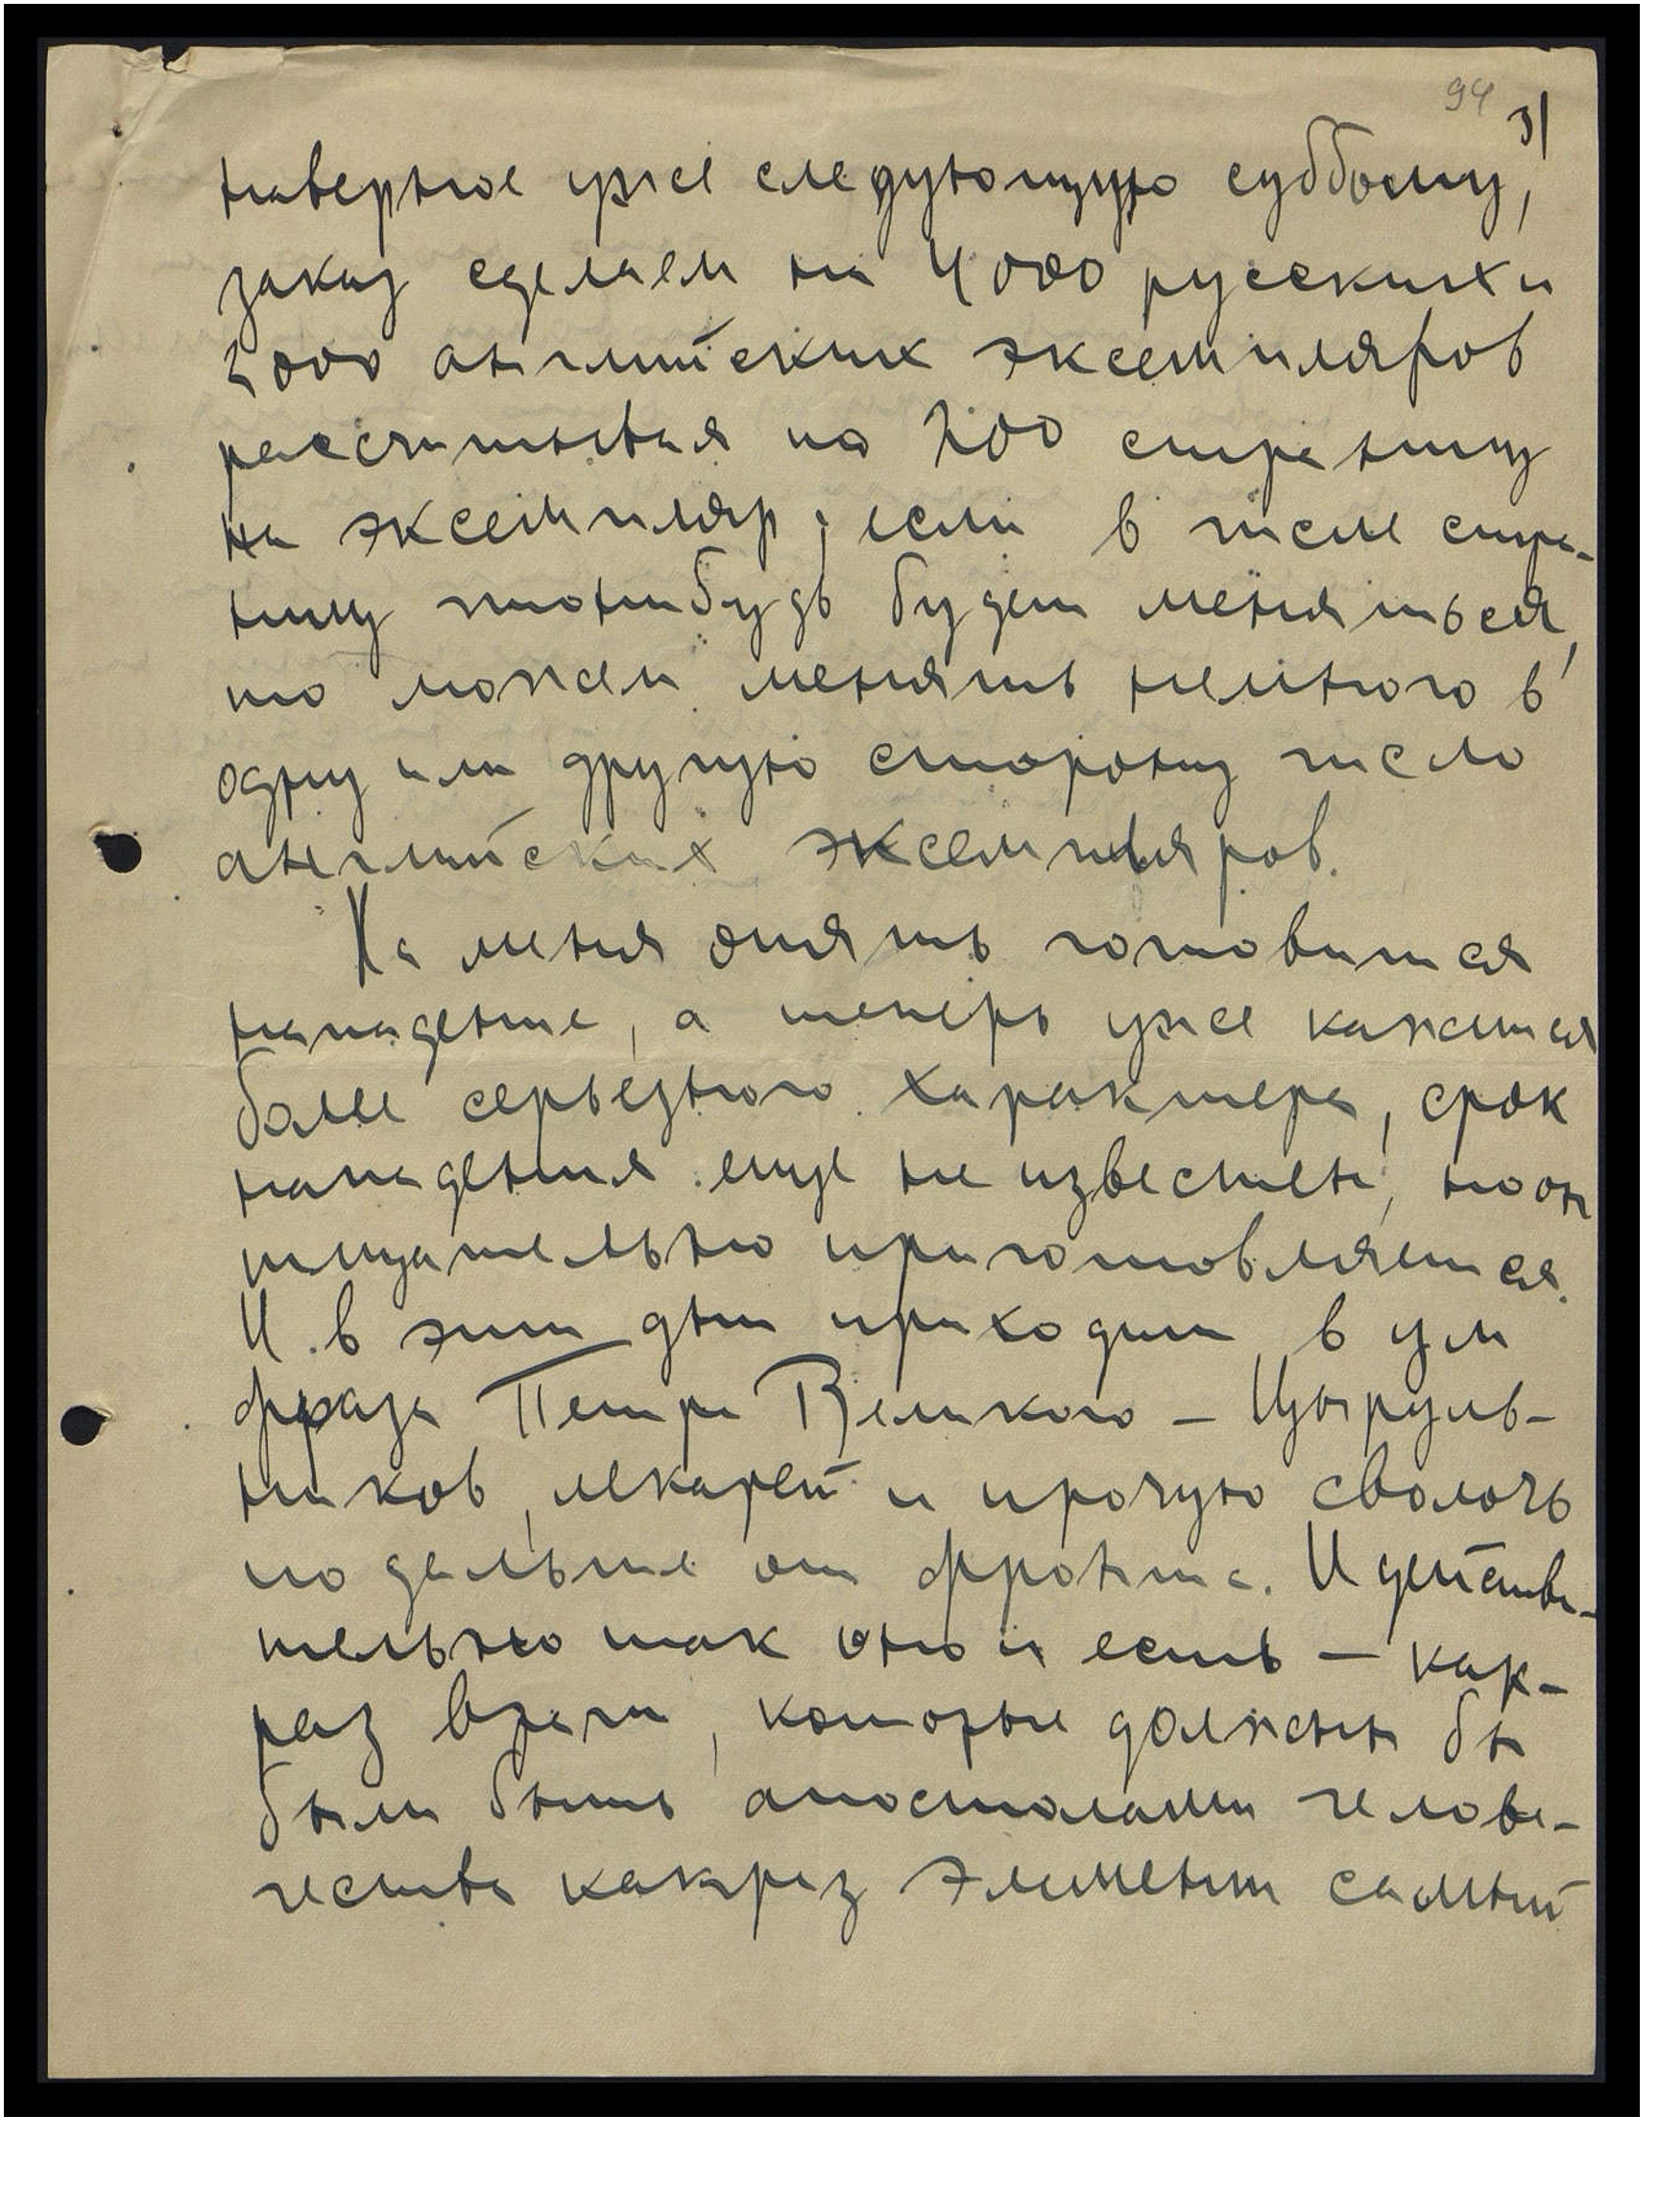 94
3)
наверное уже следующую субботу,
заказ сделаем на 4000 русских и
2000 английских экземпляров
рассчитывая по 200 страниц
на экземпляр, если в числе стра-
ниц чтонибудь будет меняться,
то можем менять немного в
одну или другую сторону число
английских экземпляров.
На меня опять готовится
нападение, а теперь уже кажется
более серьезного характера, срок
нападения еще не известен, но он
тщательно приготовляется.
И в эти дни приходит в ум
фраза Петра Великого – Цыруль-
ников, лекарей и прочую сволочь
подальше от фронта. И действи-
тельно так оно и есть – как-
раз врачи, которые должны бы
были быть апостолами челове-
чества какраз элемент самый